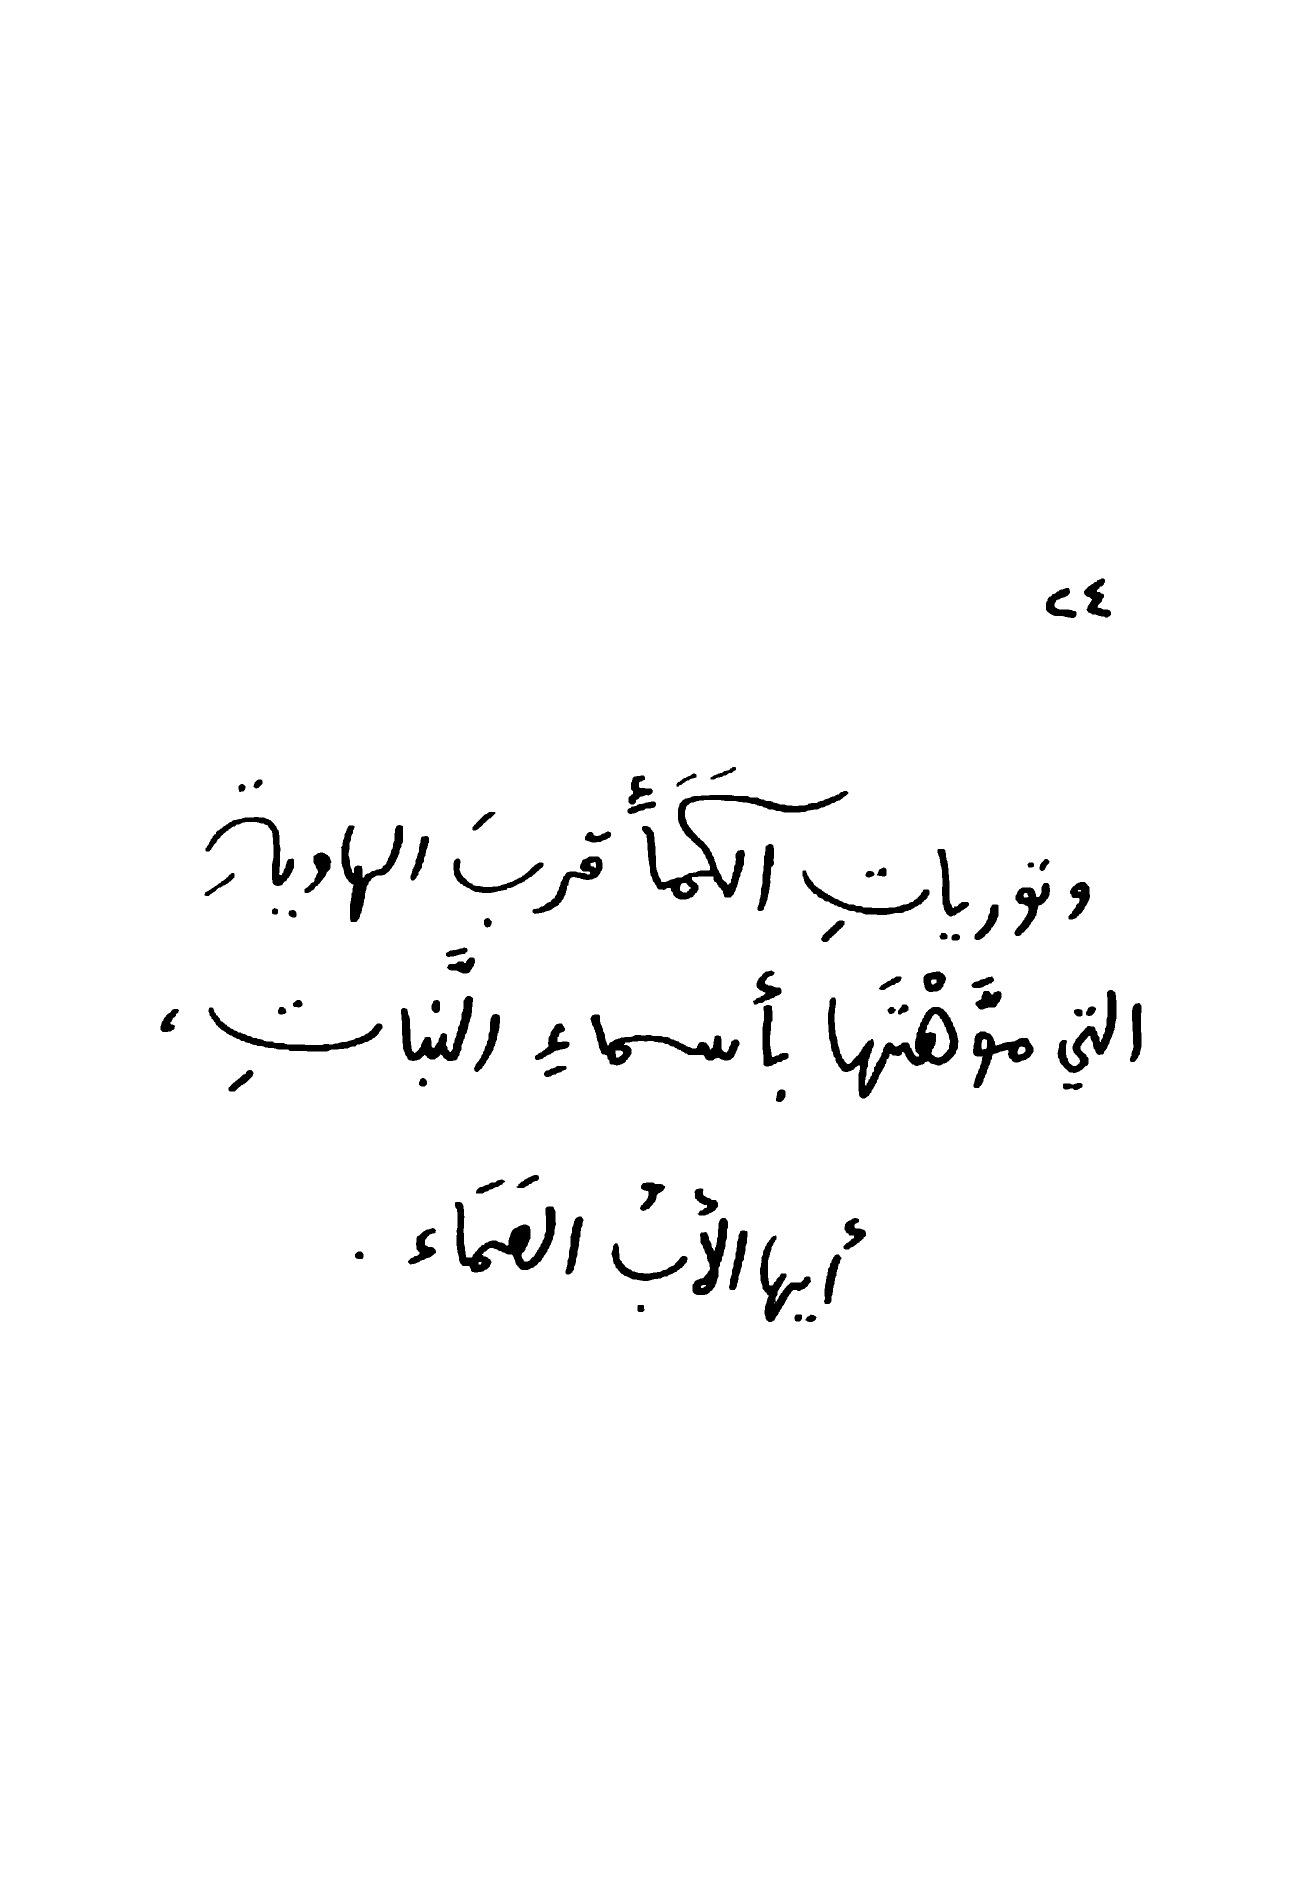 ٢٤
وتوريات الكَمَأِ قربَ الهاويةِ
التي موَّهْتَها بأسماءِ النَّباتِ،
أيها الأبُ الصَمَاء.